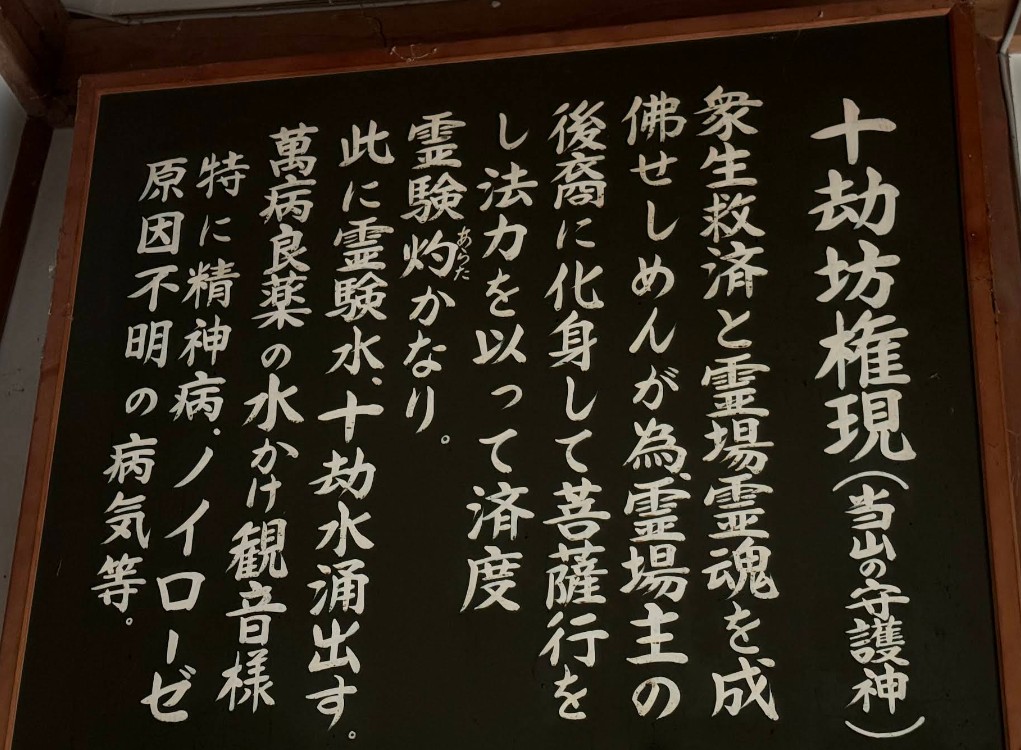 十劫坊権現（当山の守護神）
衆生救済と霊場霊魂を成
佛せしめんが為、霊場主の
後裔に化身して菩薩行を
し法力を以って済度
霊験灼あらたかなり。
此に霊験水、十劫水涌出す。
萬病良薬の水かけ観音様
特に精神病、ノイローゼ
原因不明の病気等。